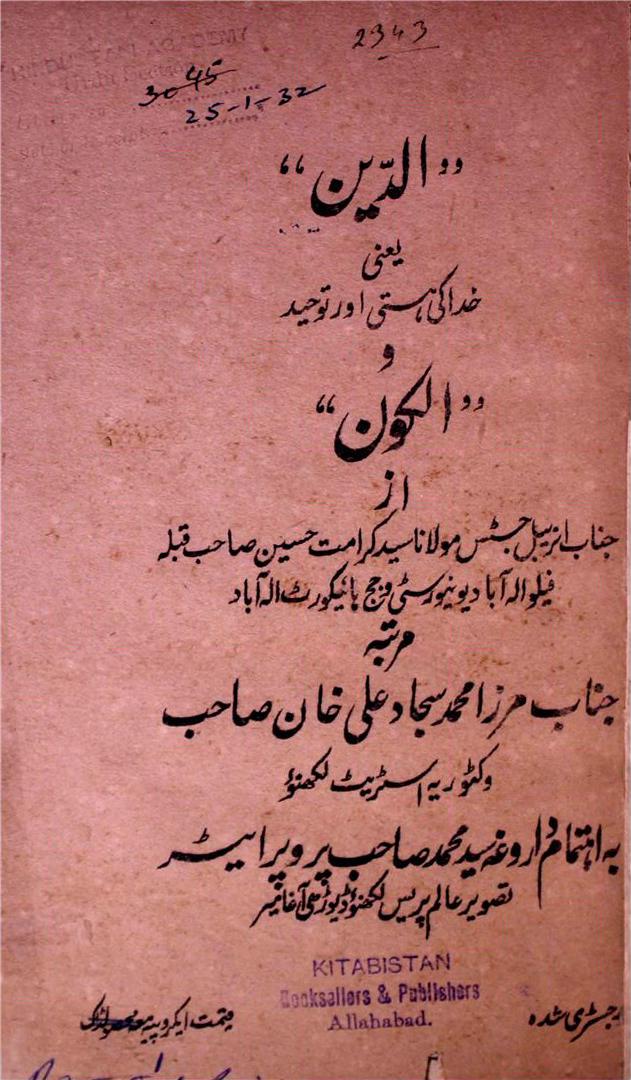 2343
HINDUSTAN ACADEMY
Urdu Section
3045
25-1-32
”الدّین“
یعنی
خدا کی ہستی اور توحید
و
”الکون“
از
جناب انریبل جسٹس مولانا سید کرامت حسین صاحب قبلہ
فیلو الہ آباد یونیورسٹی و جج ہائیکورٹ الہ آباد
مرتبہ
جناب مرزا محمد سجاد علی خان صاحب
وکٹوریہ اسٹریٹ لکھنؤ
بہ اہتمام داروغہ سید محمد صاحب پروپرائیٹر
تصویر عالم پریس لکھنؤ ڈیوڑھی آغا میر
KITABISTAN
Booksellers & Publishers
Allahabad.
رجسٹری شدہ
قیمت ایکروپیہ